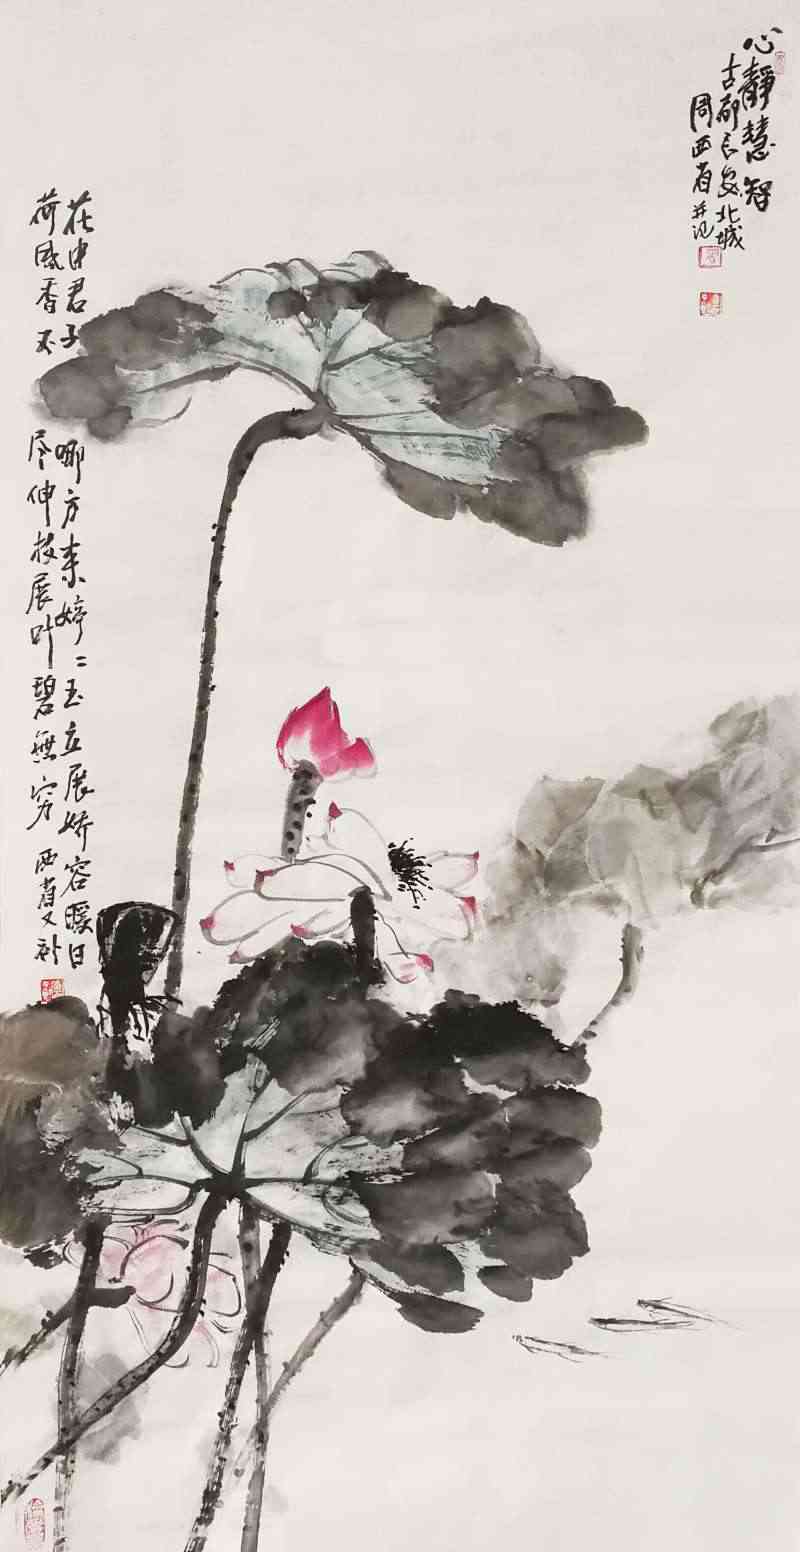 心靜慧智
古都长安北城
周西省并记
花中君子哪方来婷〻玉立展娇容暖日
荷风香不尽伸枝展叶碧無穷西省又补